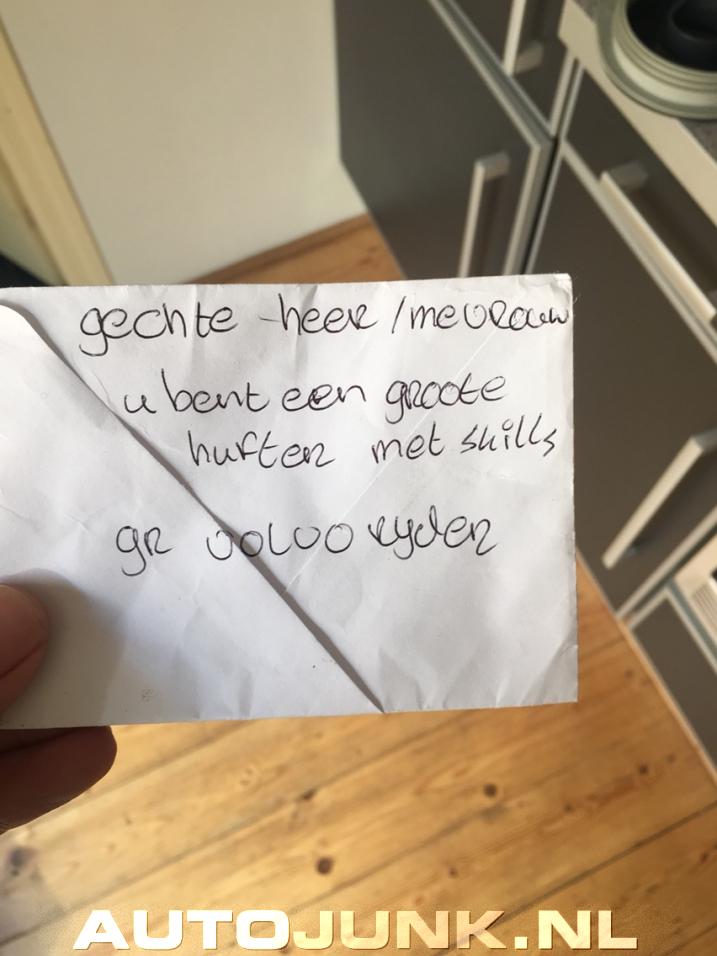 gechte heer / mevrouw
u bent een groote
hufter met skills
gr volvo ryder
AUTOJUNK.NL